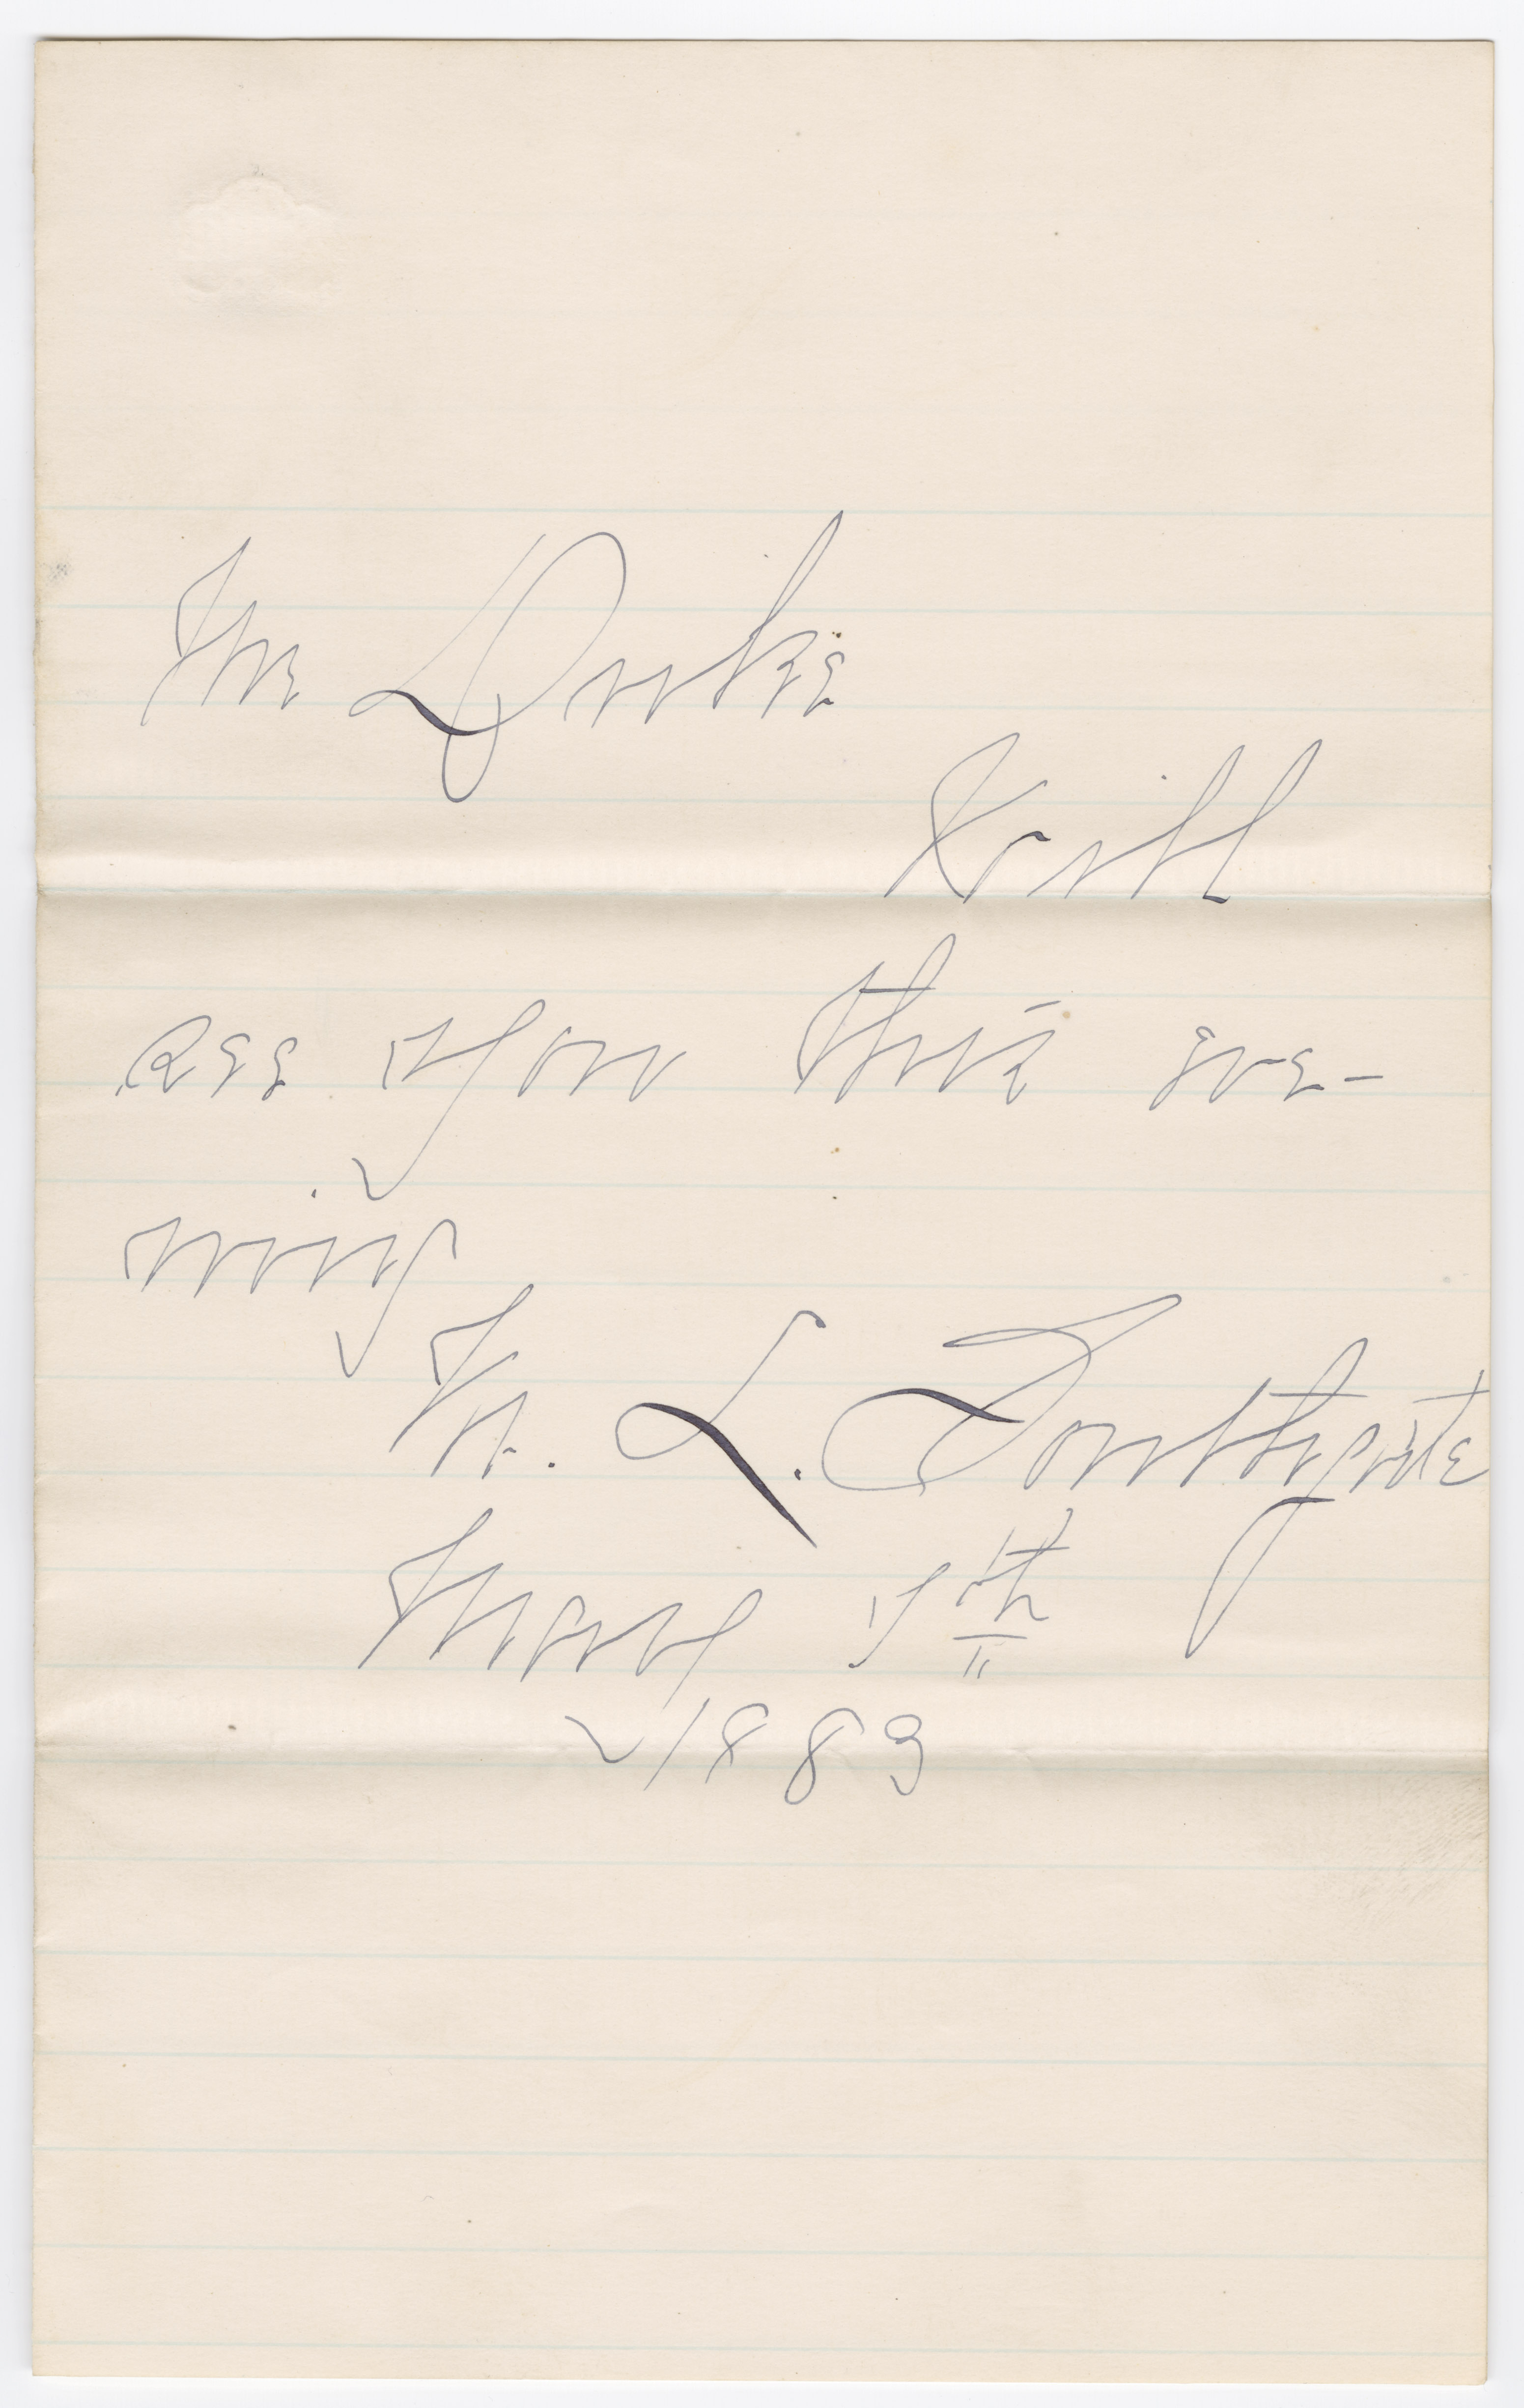 Mr Duke
Will
see you this eve-
ning
W. L. Douthgate
May 7th
1883